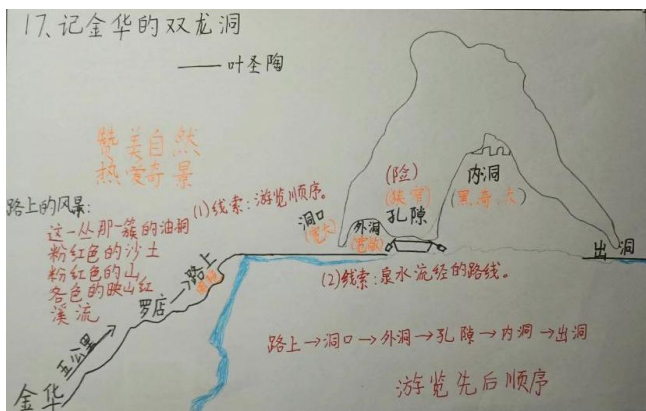 17、记金华的双龙洞
——叶圣陶
赞美自然
热爱奇景
路上的风景:
这一丛那一簇的油桐
粉红色的沙土
粉红色的山
各色的映山红
溪流
(1)线索:游览顺序。
洞口
(宽大)
外洞
(宽敞)
(险)
(狭窄)
孔隙
内洞
(黑、奇、大)
出洞
金华
五公里
罗店→路上
(2)线索:泉水流经的路线。
路上→洞口→外洞→孔隙→内洞→出洞
游览先后顺序